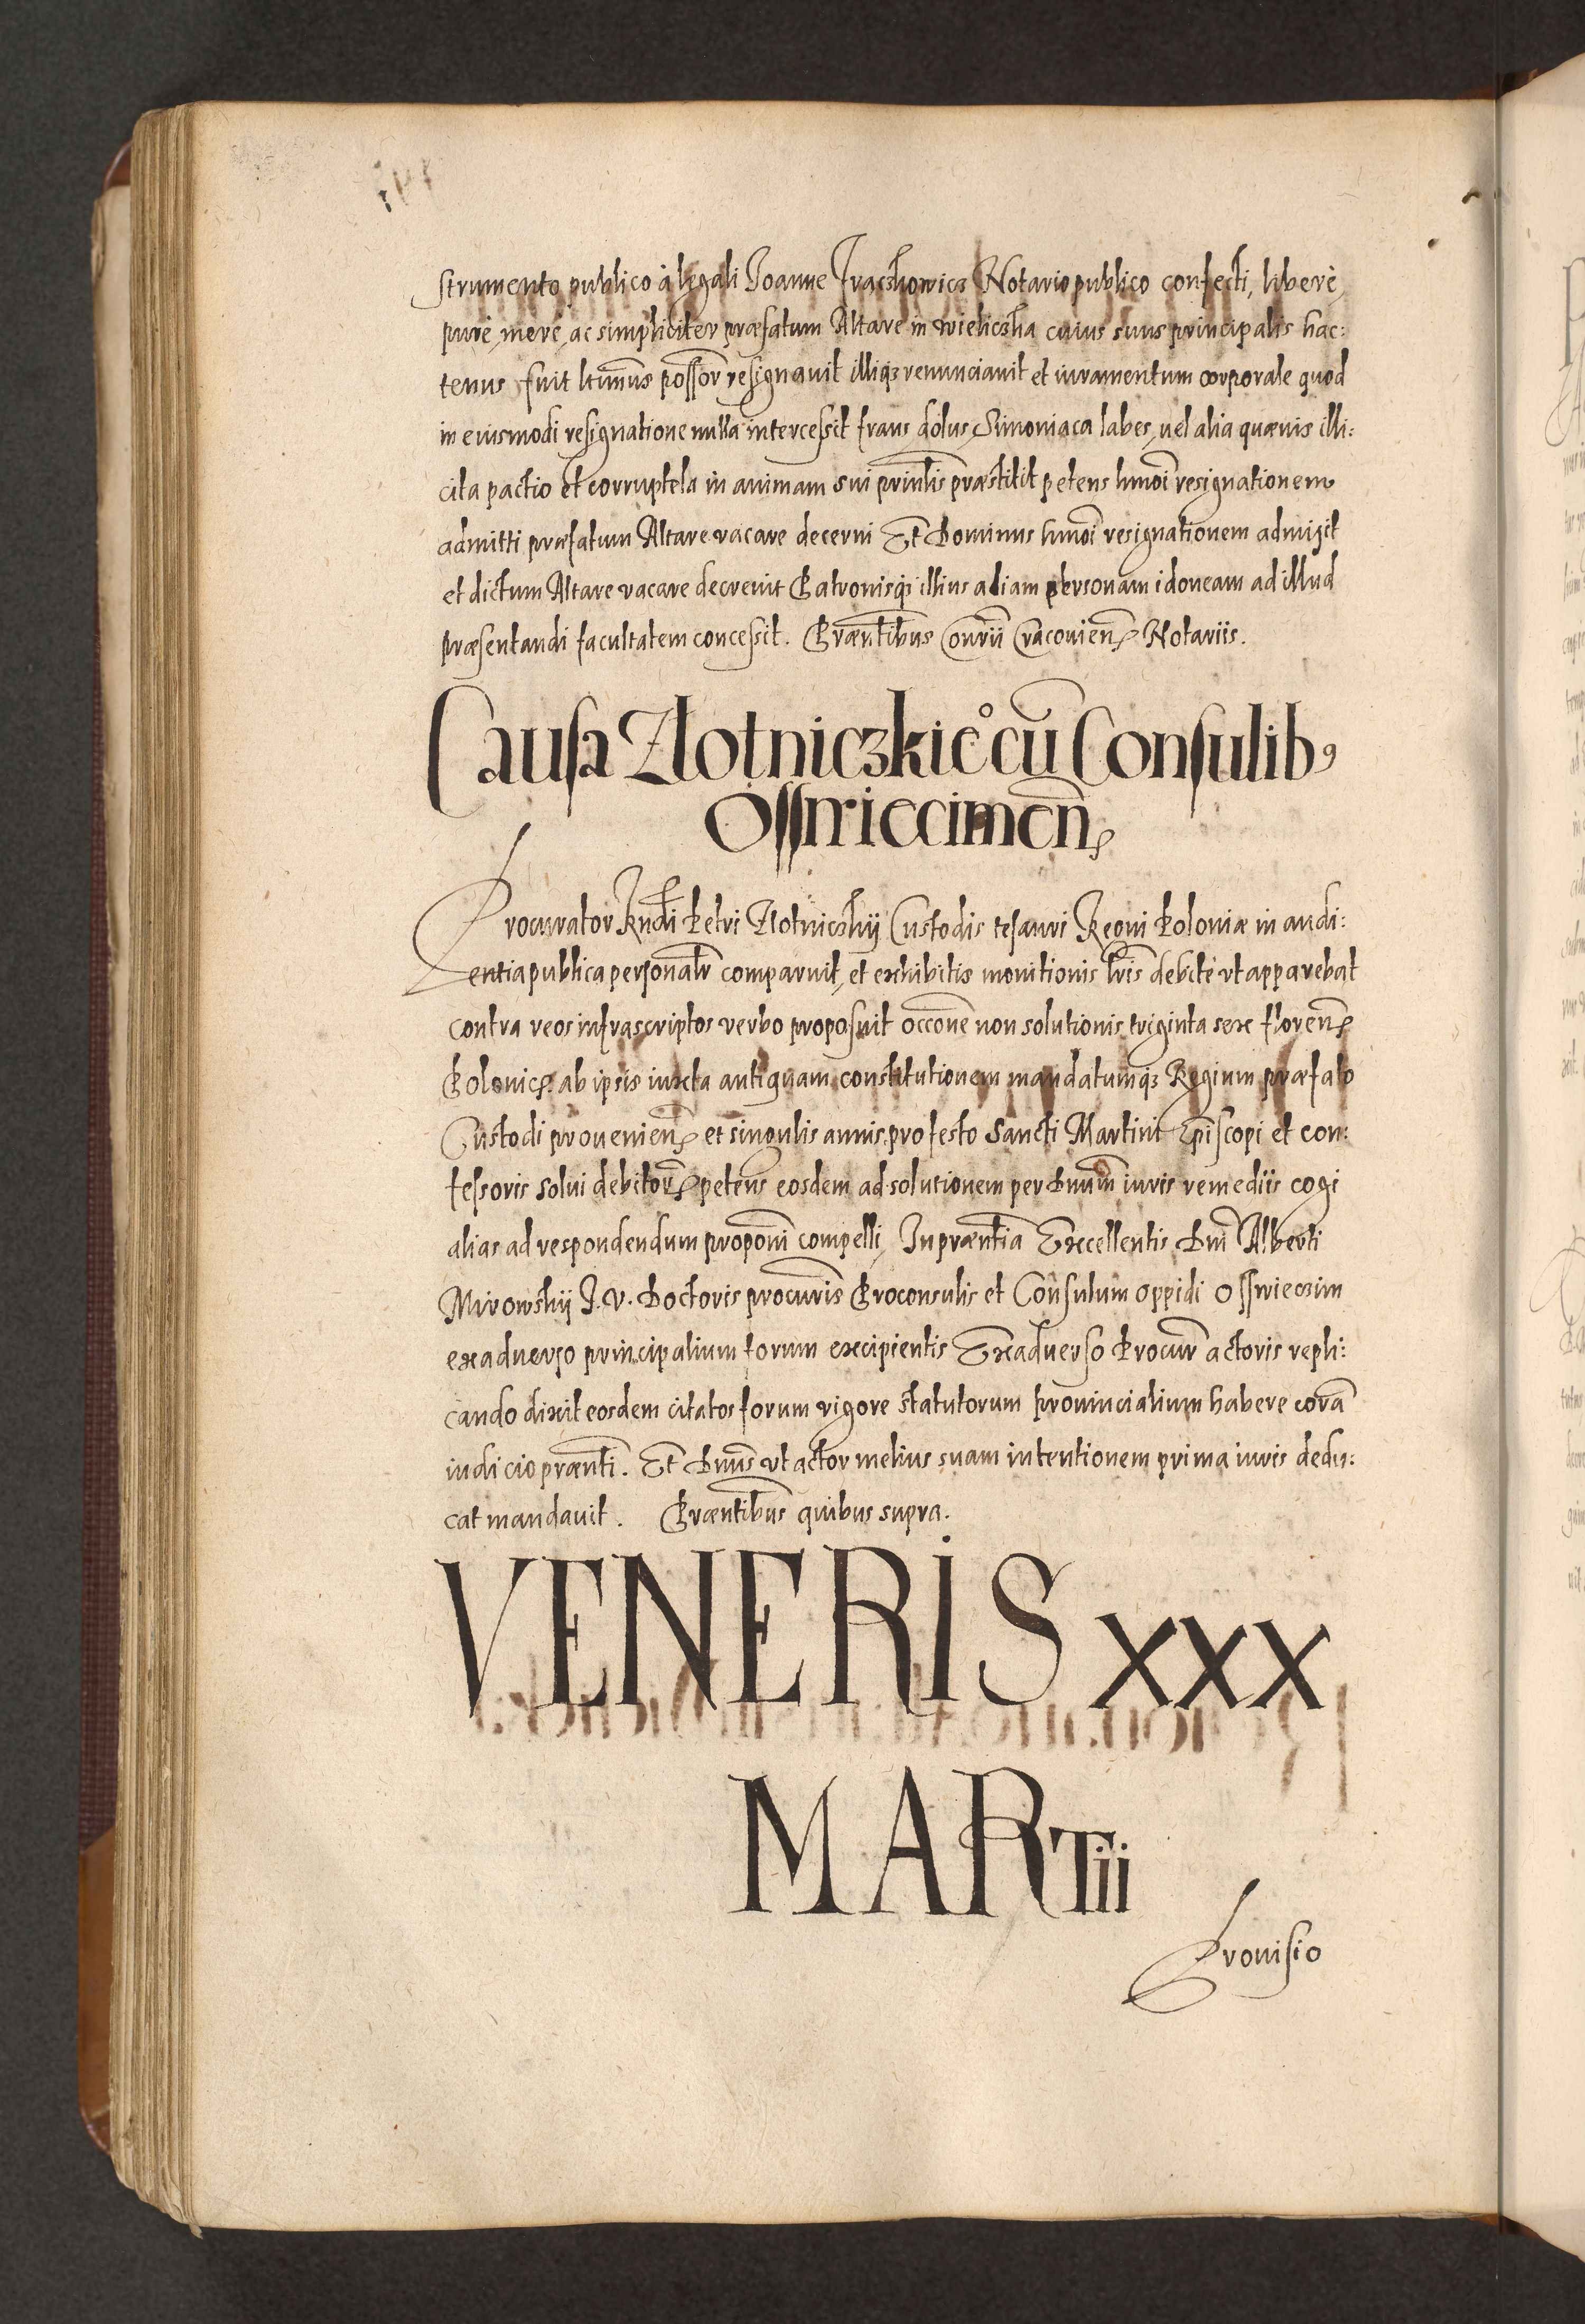 strumento publico à legali Joanne Jraczkowicz Notario publico confecti, liberè,
purè, merè, ac simpliciter præfatum Altare in wieliczka cuius suus principalis hac:
tenus fuit ltimus possor resignauit illiq₃ renunciauit et iuramentum corporale quod
in eiusmodi resignatione nulla intercessit fraus dolus Simoniaca labes, uel alia quæuis illi:
cita pactio et corruptela in animam sui prinlis præstitit petens hmoi resignationem
admitti præfatum Altare vacare decerni Et Dominus hmoi resignationem admisit
et dictum Altare vacare decreuit Patronisq₃ illius aliam personam idoneam ad illud
præsentandi facultatem concessit. Præntibus Conrii Cracouien Notariis.
Causa Zlotniczkie° cū Consulib9
Osswieccimen
Procurator Rndi Petri Zlotniczkij Custodis tesauri Regni Poloniæ in audi:
entia publica personalr comparuit, et exhibitis monitionis lris debitè ut apparebat
contra reos infrascriptos verbo proposuit occone non solutionis triginta sex floren
Polonic. ab ipsis iuxta antiquam constitutionem mandatumq₃ Regium præfato
Custodi prouenien et singulis annis pro festo Sancti Martini Episcopi et con:
fessoris solui debitor petens eosdem ad solutionem per Dnum iuris remediis cogi
alias ad respondendum proponi compelli, In præntia Excellentis Dni Alberti
Mirowskij J. V. Doctoris procuris Proconsulis et Consulum oppidi Osswieczim
ex aduerso principalium forum excipientis Ex aduerso Procur actoris repli:
cando dixit eosdem citatos forum vigore statutorum prouincialium habere corā
iudicio prænti. Et Dnus ut actor melius suam intentionem prima iuris dedu:
cat mandauit. Præntibus quibus supra.
VENERIS XXX
MARTii
Prouisio